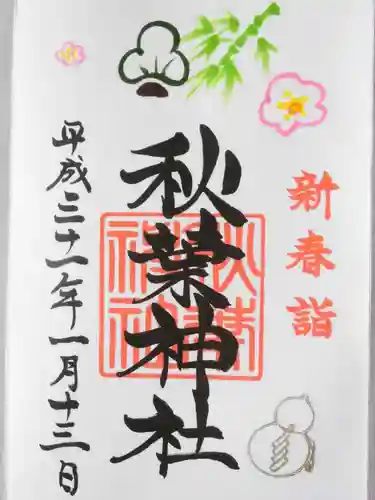 新春詣
秋葉神社
平成三十一年一月十三日
秋葉神社